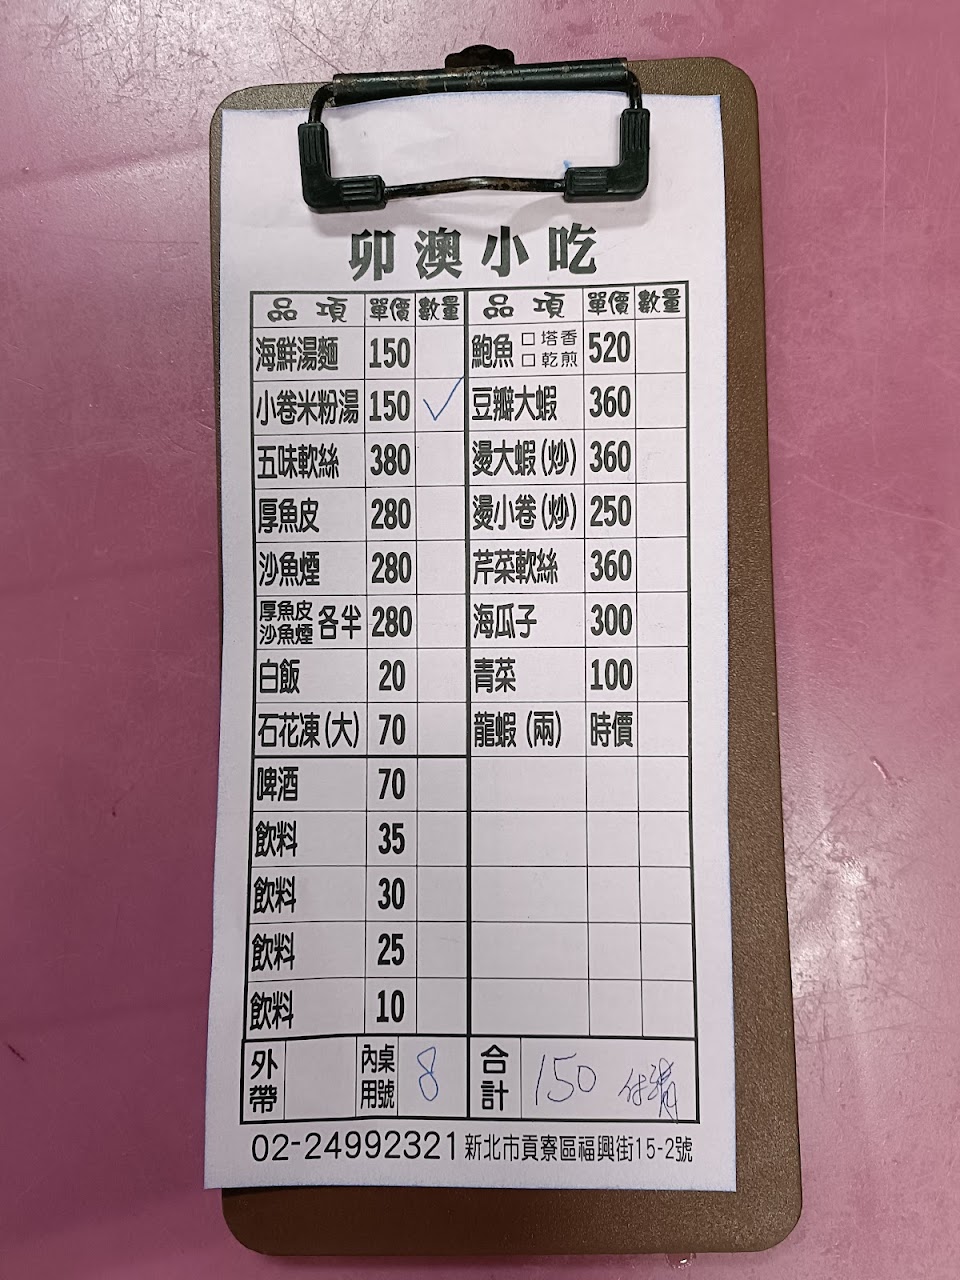 卯澳小吃
品項 單價 數量 品項 單價 數量
海鮮湯麵 150 鮑魚 □塔香 □乾煎 520
小卷米粉湯 150 ✓ 豆瓣大蝦 360
五味軟絲 380 燙大蝦(炒) 360
厚魚皮 280 燙小卷(炒) 250
沙魚煙 280 芹菜軟絲 360
厚魚皮 沙魚煙 各半 280 海瓜子 300
白飯 20 青菜 100
石花凍(大) 70 龍蝦(兩) 時價
啤酒 70
飲料 35
飲料 30
飲料 25
飲料 10
外帶 內用 桌號 8 合計 150 付清
02-24992321 新北市貢寮區福興街15-2號